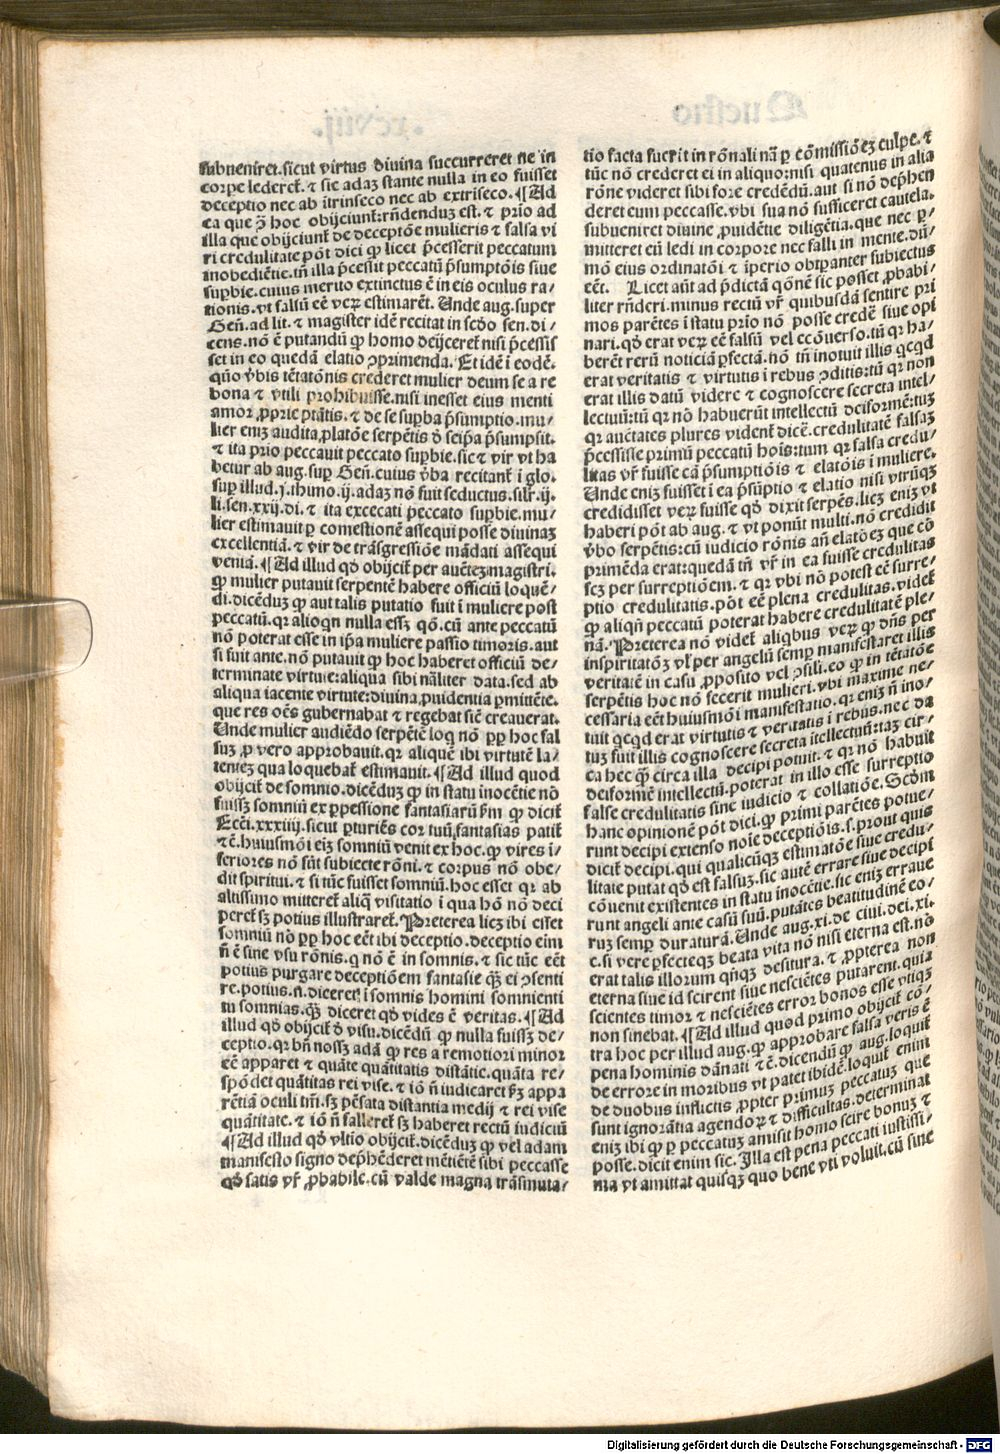 subueniret.sicut virtus diuina succurreret ne in
corpe lederet᷑. ⁊ sic adaꝫ stante nulla in eo fuisset
deceptio nec ab ĩtrinseco nec ab extrinseco. ¶Ad
ea que ꝯ̃ hoc obijciunt᷑:rñdenduꝫ est. ⁊ prĩo ad
illa que obijciunt᷑ de deceptõe mulieris ⁊ falsa vi
ri credulitate põt dici ꝙ licet p̃cesserit peccatum
inobediẽtie.tñ illa p̃cessit peccatũ p̃sumptõis siue
suꝑbie.cuius merito extinctus ẽ in eis oculus ra-
tionis.vt falsũ eẽ veꝝ estimarẽt. Unde aug.super
Geñ.ad lit.⁊ magister idẽ recitat in scḋo sen.di/
cens.nõ ẽ putandũ ꝙ homo deijceret᷑ nisi p̃cessis
set in eo quedã elatio ꝯprimenda. Et idẽ ĩ eodẽ.
qũo v̓bis tẽtatõnis crederet mulier deum se a re
bona ⁊ vtili prohibuisse.nisi inesset eius menti
amor ꝓprie ptãtis.⁊ de se suꝑba p̃sumptio.mu/
lier eniꝫ audita ꝓlatõe serpẽtis d̓ seip̃a p̃sumpsit.
⁊ ita prĩo peccauit peccato suꝑbie.sic ⁊ vir vt ha
betur ab aug.suꝑ Geñ.cuius v̓ba recitant᷑ ĩ glo.
suꝑ illud.j.thimo.ij.adaꝫ nõ fuit seductus.silr̃.ij.
li.sen.xxij.di.⁊ ita excecati p̃eccato suꝑbie.mu/
lier estimauit ꝑ comestionẽ assequi posse diuinaꝫ
excellentiã.⁊ vir de trãsgressiõe mãdati assequi
veniã. ¶Ad illud qḋ obijcit᷑ per auc̃tez magistri.
ꝙ mulier putauit serpentẽ habere officiũ loquẽ/
di.dicẽduꝫ ꝙ aut talis putatio fuit ĩ muliere post
peccatũ.qꝛ alioqn nulla essꝫ qõ.cũ ante peccatũ
nõ poterat esse in ip̃a muliere passio timoris.aut
si fuit ante.nõ putauit ꝙ hoc haberet officiũ de/
terminate virtute:aliqua sibi nãliter data.sed ab
aliqua iacente virtute:diuina ꝓuidentia ꝑmittẽte.
que res oẽs gubernabat ⁊ regebat sic̃ creauerat.
Unde mulier audiẽdo serpẽtẽ loq̃ nõ ꝓp̃ hoc fal
suꝫ ꝓ vero approbauit.qꝛ aliquẽ ibi virtutẽ la/
tenteꝫ qua loquebat᷑ estimauit. ¶Ad illud quod
obijcit᷑ de somnio.dicẽduꝫ ꝙ in statu inocẽtie nõ
fuissꝫ somniũ ex ꝓpessione fantasiarũ h̓m ꝙ dicit᷑
Ecc̃i.xxxiiij.sicut ꝑturiẽs cor tuũ fantasias patit᷑
⁊ c̃.huiusmõi eiꝫ somniũ venit ex hoc.ꝙ vires ĩ/
feriores nõ sũt subiecte rõni.⁊ corpus nõ obe/
dit spiritui.⁊ si tũc fuisset somniũ.hoc esset qꝛ ab
altissimo mitteret᷑ aliq̃ visitatio ĩ qua hõ nõ deci
peret᷑ sꝫ potius illustraret᷑. Preterea licꝫ ibi esset
somniũ nõ ꝓp̃ hoc eẽt ibi deceptio.deceptio eim
ñ ẽ sine vsu rõnis.q̃ nõ ẽ in somnis.⁊ sic tũc eẽt
potius purgare deceptiõem fantasie q̃ꝫ ei ꝯsenti
re.potius.ñ.diceret᷑ ĩ somnis homini somnienti
tu somnias.q̃ꝫ diceret qḋ vides ẽ veritas. ¶Ad
illud qḋ obijcit᷑ d̓ visu.dicẽdũ ꝙ nulla fuissꝫ de/
ceptio.qꝛ bñ nossꝫ adã ꝙ res a remotiori minor
eẽ apparet ⁊ quãte quãtitatis distãtie.quãta re/
spõdet quãtitas rei vise.⁊ iõ ñ iudicaret h̓ꝫ appa
rẽtiã oculi tm̃.sꝫ pẽsata distantia medij ⁊ rei vise
quãtitate.⁊ iõ ñ falleret᷑ sꝫ haberet rectũ iudiciũ
¶Ad illud qḋ vltĩo obijcit᷑.dicẽduꝫ ꝙ vel adam
manifesto signo dep̃hẽderet mẽtiẽtẽ sibi peccasse
qḋ satis vr̃ ꝓbabile.cũ valde magna trãsmuta/
tio facta fuerit in rõnali nã ꝑ cõmissiõeꝫ culpe.⁊
tũc nõ crederet ei in aliquo:nisi quatenus in alia
rõne videret sibi fore credẽdũ.aut si nõ dep̃hen
deret eum peccasse.vbi sua nõ sufficeret cautela.
subueniret diuine ꝓuidẽtie diligẽtia.que nec ꝑ/
mitteret eũ ledi in corpore nec falli in mente.dũ/
mõ eius ordinatõi ⁊ ĩperio obtꝑanter subiectus
eẽt. Licet aũt ad p̃dictã qõnẽ sic posset ꝓbabi/
liter rñderi.minus rectũ vr̃ quibusdã sentire pri
mos parẽtes ĩ statu prĩo nõ posse credẽ siue opi
nari.qḋ erat veꝝ eẽ falsũ vel ecõuerso.tũ qꝛ ha/
berẽt rerũ noticiã ꝑfectã.nõ tñ inotuit illis q̃cq̃d
erat veritatis ⁊ virtutis ĩ rebus ꝯditis:tũ qꝛ non
erat illis datũ videre ⁊ cognoscere secreta intel/
lectuũ:tũ qꝛ nõ habuerũt intellectũ deiformẽ:tuꝫ
qꝛ auc̃tates plures vident᷑ dicẽ.credulitatẽ falsaꝫ
p̃cessisse primũ peccatũ hoĩs:tum qꝛ falsa credu/
litas vr̃ fuisse cã p̃sumptiõis ⁊ elatõis ĩ muliere.
Unde eniꝫ fuisset ĩ ea p̃sũptio ⁊ elatio nisi vtrũqꝫ
credidisset veꝝ fuisse qḋ dixit serpẽs.licꝫ eniꝫ vt
haberi põt ab aug.⁊ vt ponũt multi.nõ credidit
v̓bo serpẽtis:cũ iudicio rõnis añ elatõeꝫ que cõ
primẽda erat:quedã tñ vr̃ in ea fuisse credulitas
scꝫ per surreptiõem.⁊ qꝛ vbi nõ potest eẽ surre/
ptio credulitatis.põt eẽ plena credulitas.videt᷑
ꝙ aliqñ peccatũ poterat habere credulitatẽ ple/
nã. Preterea nõ videt᷑ aliqbus veꝝ ꝙ dñs per
inspiritatõꝫ vl̓ per angelũ semꝑ manifestaret illis
veritatẽ in casu ꝓposito vel ꝯsili.eo ꝙ in tẽtatõe
serpẽtis hoc nõ fecerit mulieri.vbi maxime ne/
cessaria eẽt huiusmõi manifestatio.qꝛ eniꝫ ñ ino/
tuit q̃cq̃d erat virtutis ⁊ veritatis ĩ rebus.nec da
tuꝫ fuit illis cognoscere secreta ĩtellectuũ:taꝫ cir/
ca hec q̃ꝫ circa illa decipi potuit.⁊ qꝛ nõ habuit
deiformẽ intellectũ.poterat in illo esse surreptio
false credulitatis sine iudicio ⁊ collatiõe. Scḋm
hanc opinionẽ põt dici.ꝙ primi parẽtes potue/
runt decipi extenso noĩe deceptiõis.s.prout quis
dicit᷑ decipi.qui qualicũqꝫ estimatõe siue credu/
litate putat qḋ est falsuꝫ.sic autẽ errare siue decipi
cõuenit existentes in statu inocẽtie.sic eniꝫ erraue
runt angeli ante casũ suũ.putãtes beatitudinẽ eo/
ruꝫ semꝑ duraturã. Unde aug.xi.de ciui.dei.xi.
c.si vere ꝑfecteqꝫ beata vita nõ nisi eterna est.nõ
erat talis illorum qñqꝫ desitura.⁊ ꝓpterea non
eterna siue id scirent siue nesciẽtes putarent.quia
scientes timor ⁊ nesciẽtes error bonos esse vtiqꝫ
non sinebat. ¶Ad illud quod primo obijcit᷑ cõ/
tra hoc per illud aug.ꝙ approbare falsa veris ẽ
pena hominis dãnati ⁊ c̃.dicendũ ꝙ aug.loquit᷑
de errore in moribus vt patet ibidẽ.loquit᷑ enim
de duobus inflictis ꝓpter primuꝫ peccatuꝫ que
sunt ignorãtia agendoꝝ ⁊ difficultas.determinat
eniꝫ ibi ꝙ ꝓp̃ peccatuꝫ amisit homo scire bonuꝫ ⁊
posse.dicit enim sic. Illa est pena peccati iustissi/
ma vt amittat quisqꝫ quo bene vti voluit.cũ sine
Digitalisierung gefördert durch die Deutsche Forschungsgemeinschaft - DFG